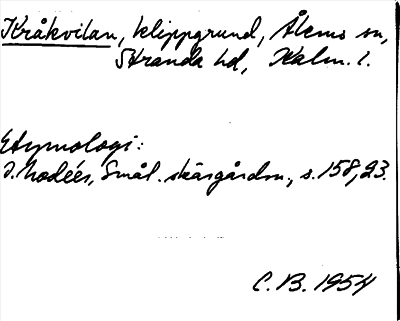 Kråkvilan, klippgrund, Ålems sn,
Stranda hd, Kalm. l.
Etymologi:
I. Modéer, Smål. skärgårdsn., s. 158, 23.
C. B. 1954